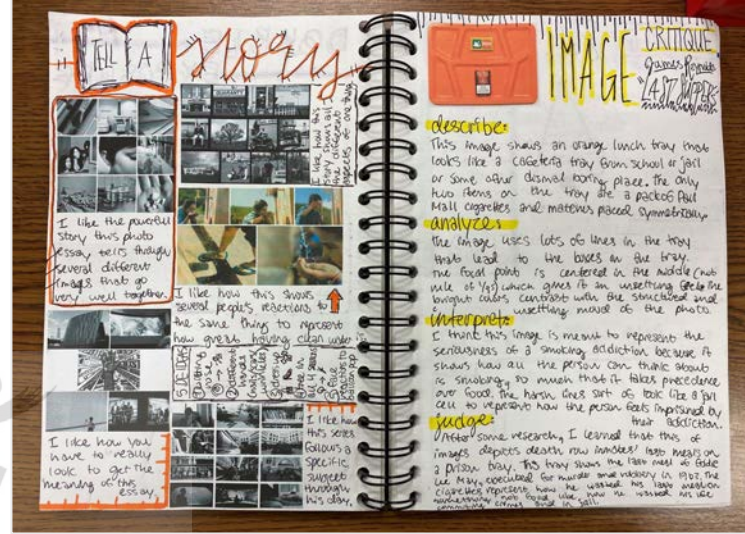 TELL A
story
I like the powerful
story this photo
essay tells through
several different
images that go
very well together.
I like how this
story shows all
the different
aspects of one thing
I like how this shows
several people's reactions to
the same thing to represent
how great having clean water is
5 IDEAS
I like how you
have to really
look to get the
meaning of this
essay.
I like how
this series
follows a
specific
subject
through
his day.
IMAGE
CRITIQUE
James Reynolds
"LAST SUPPERS"
describe:
This image shows an orange lunch tray that
looks like a cafeteria tray from school or jail
or some other dismal boring place. The only
two items on the tray are a pack of Pall
Mall cigarettes and matches placed symmetrically.
analyze:
the image uses lots of lines in the tray
that lead to the boxes on the tray.
The focal point is centered in the middle (not
rule of 1/3s) which gives it an unsettling feel. The
bright colors contrast with the structured and
unsettling mood of the photo.
interpret:
I think this image is meant to represent the
seriousness of a smoking addiction because it
shows how all the person can think about
is smoking, so much that it takes precedence
over food. the harsh lines sort of look like a jail
cell to represent how the person feels imprisoned by
their addiction.
judge:
After some research, I learned that this of
images depicts death row inmates' last meals on
a prison tray. This tray shows the last meal of Eddie
Lee Mays, executed for murder and robbery in 1962. The
cigarettes represent how he wasted his last meal on
something not food like how he wasted his life
committing crimes and in jail.